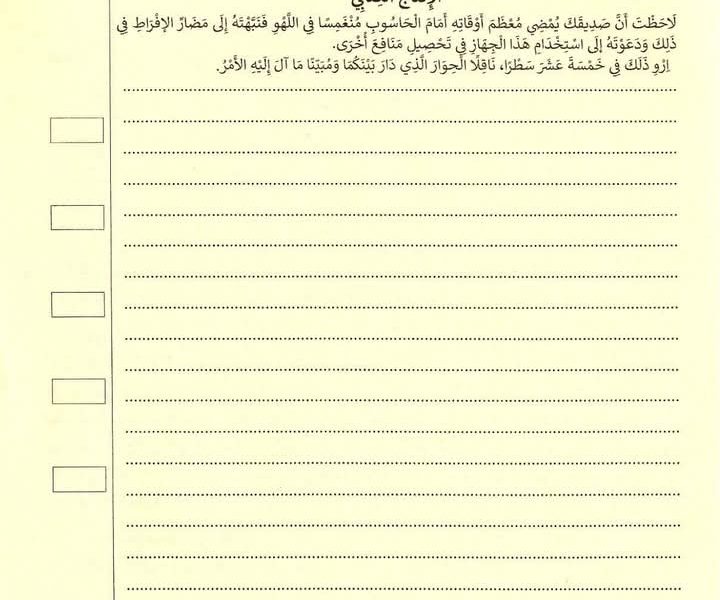 لَاحَظْتَ أَنَّ صَدِيقَكَ يُمْضِي مُعْظَمَ أَوْقَاتِهِ أَمَامَ الْحَاسُوبِ مُنْغَمِسًا فِي اللَّهْوِ فَنَبَّهْتَهُ إِلَى مَضَارِّ الإِفْرَاطِ فِي
ذَلِكَ وَدَعَوْتَهُ إِلَى اسْتِخْدَامِ هَذَا الْجِهَازِ فِي تَحْصِيلِ مَنَافِعَ أُخْرَى.
اِرْوِ ذَلِكَ فِي خَمْسَةَ عَشَرَ سَطْرًا، نَاقِلًا الْحِوَارَ الَّذِي دَارَ بَيْنَكُمَا وَمُبَيِّنًا مَا آلَ إِلَيْهِ الأَمْرُ.